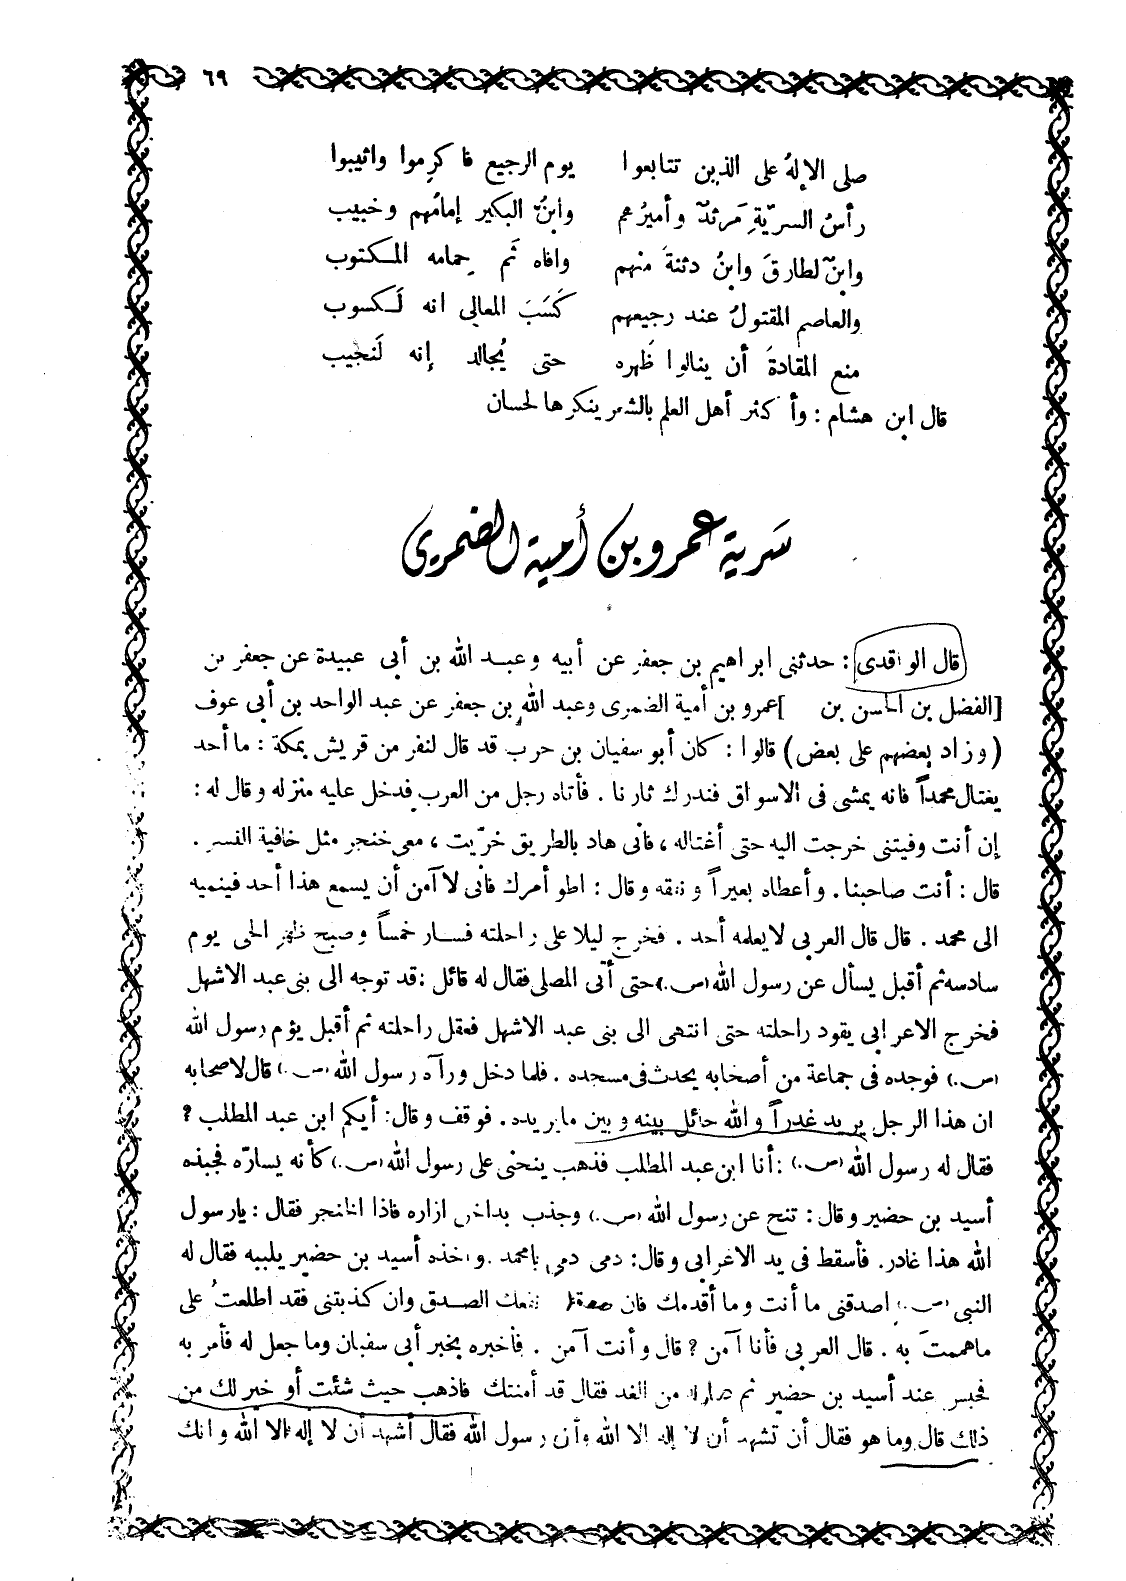 ٦٩
صلى الإلهُ على الذين تتابعوا يوم الرجيع فأكرموا واثيبوا
رأسُ السريّةِ مَرثدٌ وأميرُهم وابنُ البكير إمامُهم وخبيب
وابنٌ لطارقَ وابنُ دثنةَ منهم وافاه ثَم حمامه المكتوب
والعاصم المقتولُ عند رجيعهم كَسَبَ المعالي انه لَكسوب
منع المقادةَ أن ينالوا ظَهره حتى يُجالد إنه لَنجيب
قال ابن هشام : وأكثر أهل العلم بالشعر ينكرها لحسان
سَرية عمرو بن أمية الضمرى
قال الواقدى : حدثنى ابراهيم بن جعفر عن أبيه وعبد الله بن أبى عبيدة عن جعفر بن
[الفضل بن الحسن بن ]عمرو بن أمية الضمرى وعبد الله بن جعفر عن عبد الواحد بن أبى عوف
( وزاد بعضهم على بعض ) قالوا : كان أبو سفيان بن حرب قد قال لنفر من قريش بمكة : ما أحد
يغتال محمداً فانه يمشى فى الاسواق فندرك ثارنا . فأتاه رجل من العرب فدخل عليه منزله وقال له :
إن أنت وفيتنى خرجت اليه حتى أغتاله ، فانى هاد بالطريق خرّيت ، معى خنجر مثل خافية النسر .
قال : أنت صاحبنا . وأعطاه بعيراً ونفقه وقال : اطو أمرك فانى لا آمن أن يسمع هذا أحد فينميه
الى محمد . قال قال العربى لا يعلمه أحد . فخرج ليلا على راحلته فسار خمساً وصبح ظهر الحى يوم
سادسه ثم أقبل يسأل عن رسول الله (ص.) حتى أتى المصلى فقال له قائل : قد توجه الى بنى عبد الاشهل
فخرج الاعرابى يقود راحلته حتى انتهى الى بنى عبد الاشهل فعقل راحلته ثم أقبل يؤم رسول الله
(ص.) فوجده فى جماعة من أصحابه يحدث فى مسجده . فلما دخل ورآه رسول الله (ص.) قال لاصحابه
ان هذا الرجل يريد غدراً والله حائل بينه وبين ما يريده . فوقف وقال : أيكم ابن عبد المطلب ؟
فقال له رسول الله (ص.) : أنا ابن عبد المطلب فذهب ينحنى على رسول الله (ص.) كأنه يسارّه فجبذه
أسيد بن حضير وقال : تنح عن رسول الله (ص.) وجذب بداخل ازاره فاذا الخنجر فقال : يارسول
الله هذا غادر . فأسقط فى يد الاعرابى وقال : دمى دمى يامحمد . وأخذه أسيد بن حضير يلببه فقال له
النبى (ص.) اصدقنى ما أنت وما أقدمك فان نفعك الصدق وان كذبتنى فقد اطلعتُ على
ماهممتَ به . قال العربى فأنا آمن ؟ قال وأنت آمن . فأخبره بخبر أبى سفيان وما جعل له فأمر به
فحبس عند أسيد بن حضير ثم من الغد فقال قد أمنتك فاذهب حيث شئت أو خير لك من
ذلك قال وما هو فقال أن تشهد أن لا إله الا الله وأنى رسول الله فقال أشهد أن لا إله الا الله وانك